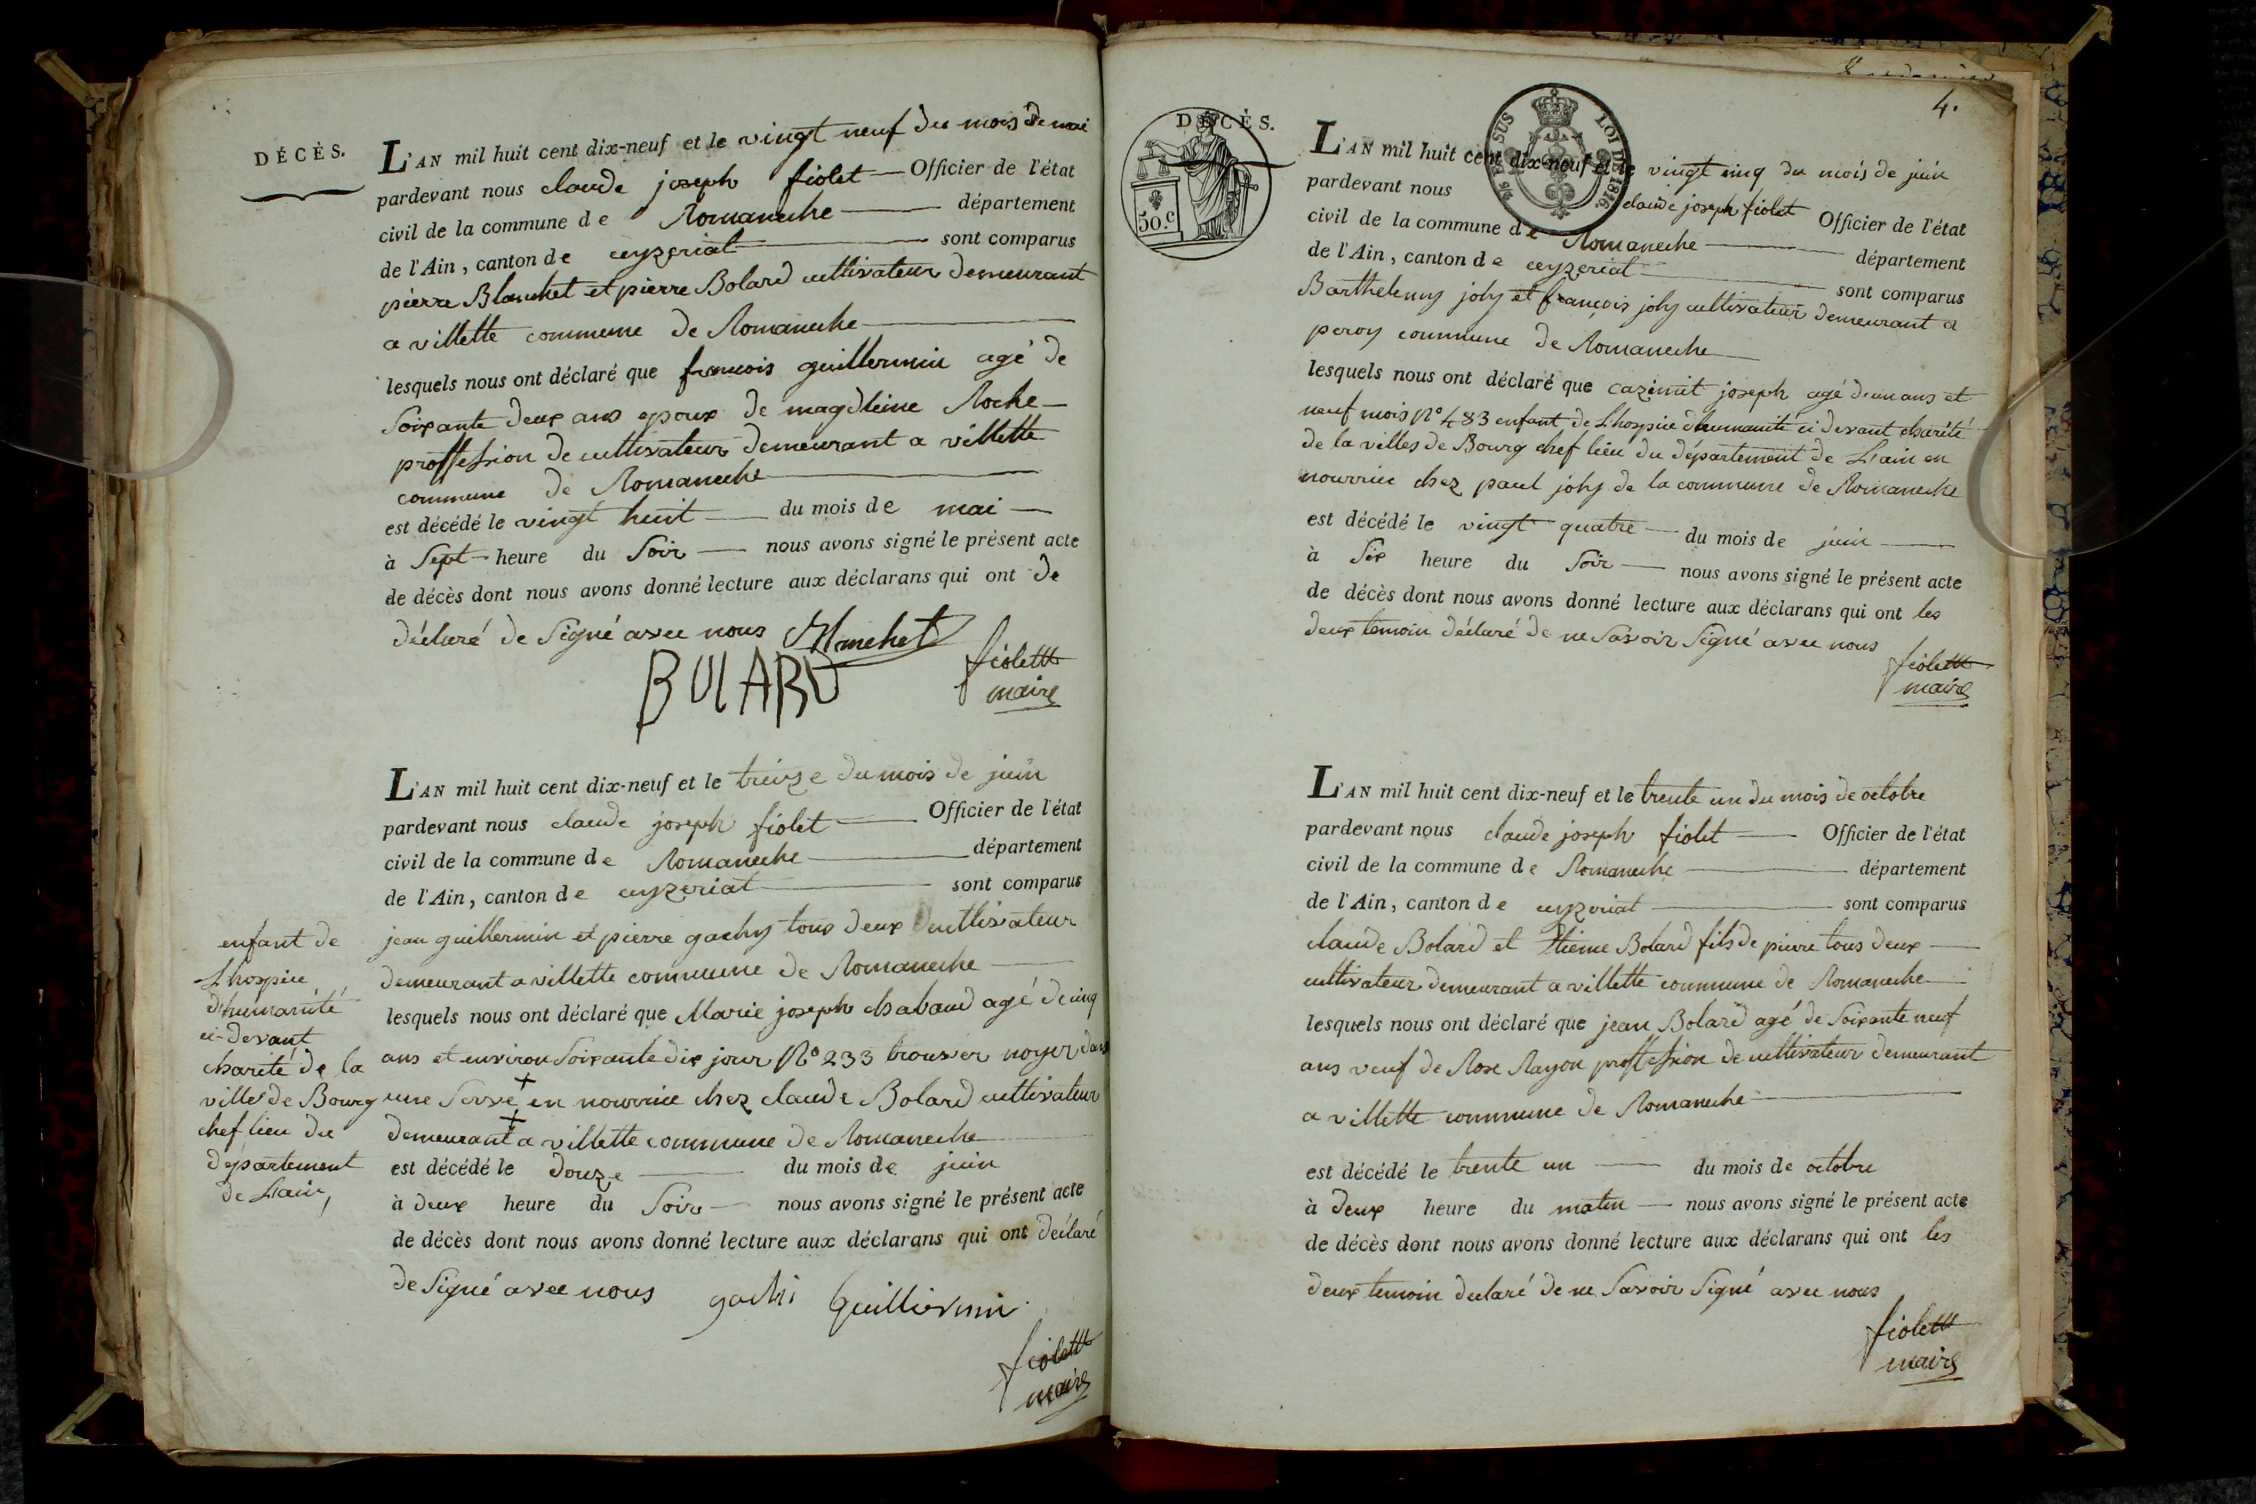 DÉCÈS.
L'AN mil huit cent dix-neuf et le vingt neuf du mois de mai
pardevant nous claude joseph fiolet Officier de l'état
civil de la commune de Romaneche département
de l'Ain, canton de ceyzeriat sont comparus
pierre Blanchet et pierre Bolard cultivateur demeurant
a villette commune de Romaneche
lesquels nous ont déclaré que francois guillermin agé de
Soixante deux ans epoux de magdleine Roche
proffession de cultivateur demeurant a villette
commune de Romaneche
est décédé le vingt huit du mois de mai
à Sept heure du Soir nous avons signé le présent acte
de décès dont nous avons donné lecture aux déclarans qui ont de
déclaré de Signé avec nous Blanchet
BOLARD fiolet
maire
L'AN mil huit cent dix-neuf et le treize du mois de juin
pardevant nous claude joseph fiolet Officier de l'état
civil de la commune de Romaneche département
de l'Ain, canton de ceyzeriat sont comparus
jean guillermin et pierre gachy tous deux cultivateur
demeurant a villette commune de Romaneche
lesquels nous ont déclaré que Marie joseph chabaud agé de cinq
ans et environ Soixante dix jour No 233 trouver noyer dans
une Serve + en nourrice chez claude Bolard cultivateur
demeurant + a villette commune de Romaneche
est décédé le douze du mois de juin
à deux heure du Soir nous avons signé le présent acte
de décès dont nous avons donné lecture aux déclarans qui ont déclaré
de Signé avec nous gachi Guillermin
fiolet
maire
enfant de
L'hospice
d'humanité
ci-devant
charité de la
ville de Bourg
chef lieu du
département
de L'ain,
4.
DÉCÈS.
50.c
LOI DE 1816.
L'AN mil huit cent dix-neuf et le vingt cinq du mois de juin
pardevant nous claude joseph fiolet Officier de l'état
civil de la commune de Romaneche département
de l'Ain, canton de ceyzeriat sont comparus
Barthelemy joly et françois joly cultivateur demeurant a
peroy commune de Romaneche
lesquels nous ont déclaré que cazimit joseph agé d'un ans et
neuf mois No 483 enfant de L'hospice d'humanité ci devant charité
de la villes de Bourg chef lieu du département de L'ain en
nourrice chez paul joly de la commune de Romaneche
est décédé le vingt quatre du mois de juin
à Six heure du Soir nous avons signé le présent acte
de décès dont nous avons donné lecture aux déclarans qui ont les
deux temoin déclaré de ne Savoir Signé avec nous
fiolet
maire
L'AN mil huit cent dix-neuf et le trente un du mois de octobre
pardevant nous claude joseph fiolet Officier de l'état
civil de la commune de Romaneche département
de l'Ain, canton de ceyzeriat sont comparus
claude Bolard et Etieme Bolard fils de pierre tous deux
cultivateur demeurant a villette commune de Romaneche
lesquels nous ont déclaré que jean Bolard agé de Soixante neuf
ans veuf de Rose Rayon proffession de cultivateur demeurant
a villette commune de Romaneche
est décédé le trente un du mois de octobre
à deux heure du matin nous avons signé le présent acte
de décès dont nous avons donné lecture aux déclarans qui ont les
deux temoin declaré de ne Savoir Signé avec nous
fiolet
maire